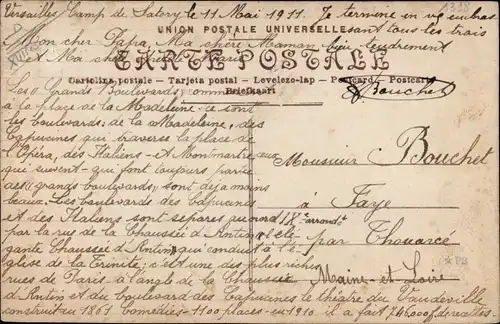 Versailles Camp de Satory le 11 Mai 1911. Je termine en vs embras
UNION POSTALE UNIVERSELLE sant tous les trois
Mon cher Papa, Ma chère Maman bien tendrement
et Ma
CARTE POSTALE
Cartolina postale — Tarjeta postal — Levelezo-lap — Postcard — Postcarte
Briefkaart
Bouchet
Les Grands Boulevards comm
à la place de la Madeleine - ce sont
les boulevards: de la Madeleine, des
Capucines qui traverse la place de
l'Opéra, des Italiens - Et Montmartre
qui suivent - qui font toujours partie
des grands boulevards, sont déjà moins
beaux. Les boulevards des Capucines
et des Italiens sont séparés au nord
par la rue de la Chaussée d'Antin
gante Chaussée d'Antin qui conduit à l'é
glise de la Trinité; c'est une des plus riches
rues de Paris à l'angle de la Chaussée
d'Antin et du boulevard des Capucines le théâtre du Vaudeville
construit en 1867 Comédies - 1100 places - en 1910 il a fait 746000f de recettes
Monsieur Bouchet
à Faye
IXe arrondt
par Thouarcé
Maine-et-Loire